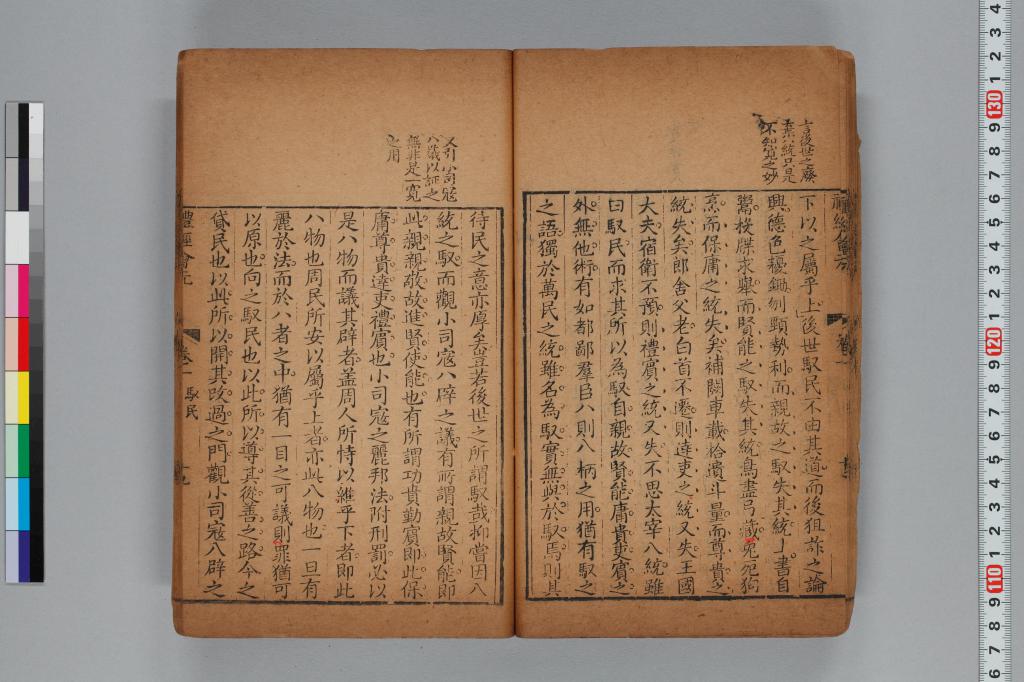 言後世之廢
棄八統只是
不知馭之妙
下以之屬乎上後世馭民不由其道而後狙詐之論
興德色耰鋤刎頸勢利而親故之馭失其統上書自
鬻投牒求舉而賢能之馭失其統鳥盡弓藏兎死狗
烹而保庸之統失矣補闕車載拾遺斗量而尊貴之
統失矣郎舍父老白首不遷則達吏之統又失王國
大夫宿衛不預則禮賓之統又失不思太宰八統雖
曰馭民而求其所以為馭自親故賢能庸貴吏賓之
外無他術有如都鄙羣臣八則八柄之用猶有馭之
之語獨於萬民之統雖名為馭實無與於馭焉則其
又引小司寇
八議以証之
無非是一寬
之用
待民之意亦厚矣豈若後世之所謂馭哉抑嘗因八
統之馭而觀小司寇八辟之議有所謂親故賢能即
此親親敬故進賢使能也有所謂功貴勤賓即此保
庸尊貴達吏禮賓也小司寇之麗邦法附刑罰必以
是八物而議其辟者盖周人所恃以維乎下者即此
八物也周民所安以屬乎上者亦此八物也一旦有
麗於法而於八者之中猶有一目之可議則罪猶可
以原也向之馭民也以此所以尊其從善之路今之
貸民也以此所以開其改過之門觀小司寇八辟之
禮經會元
卷一
馭民
十九